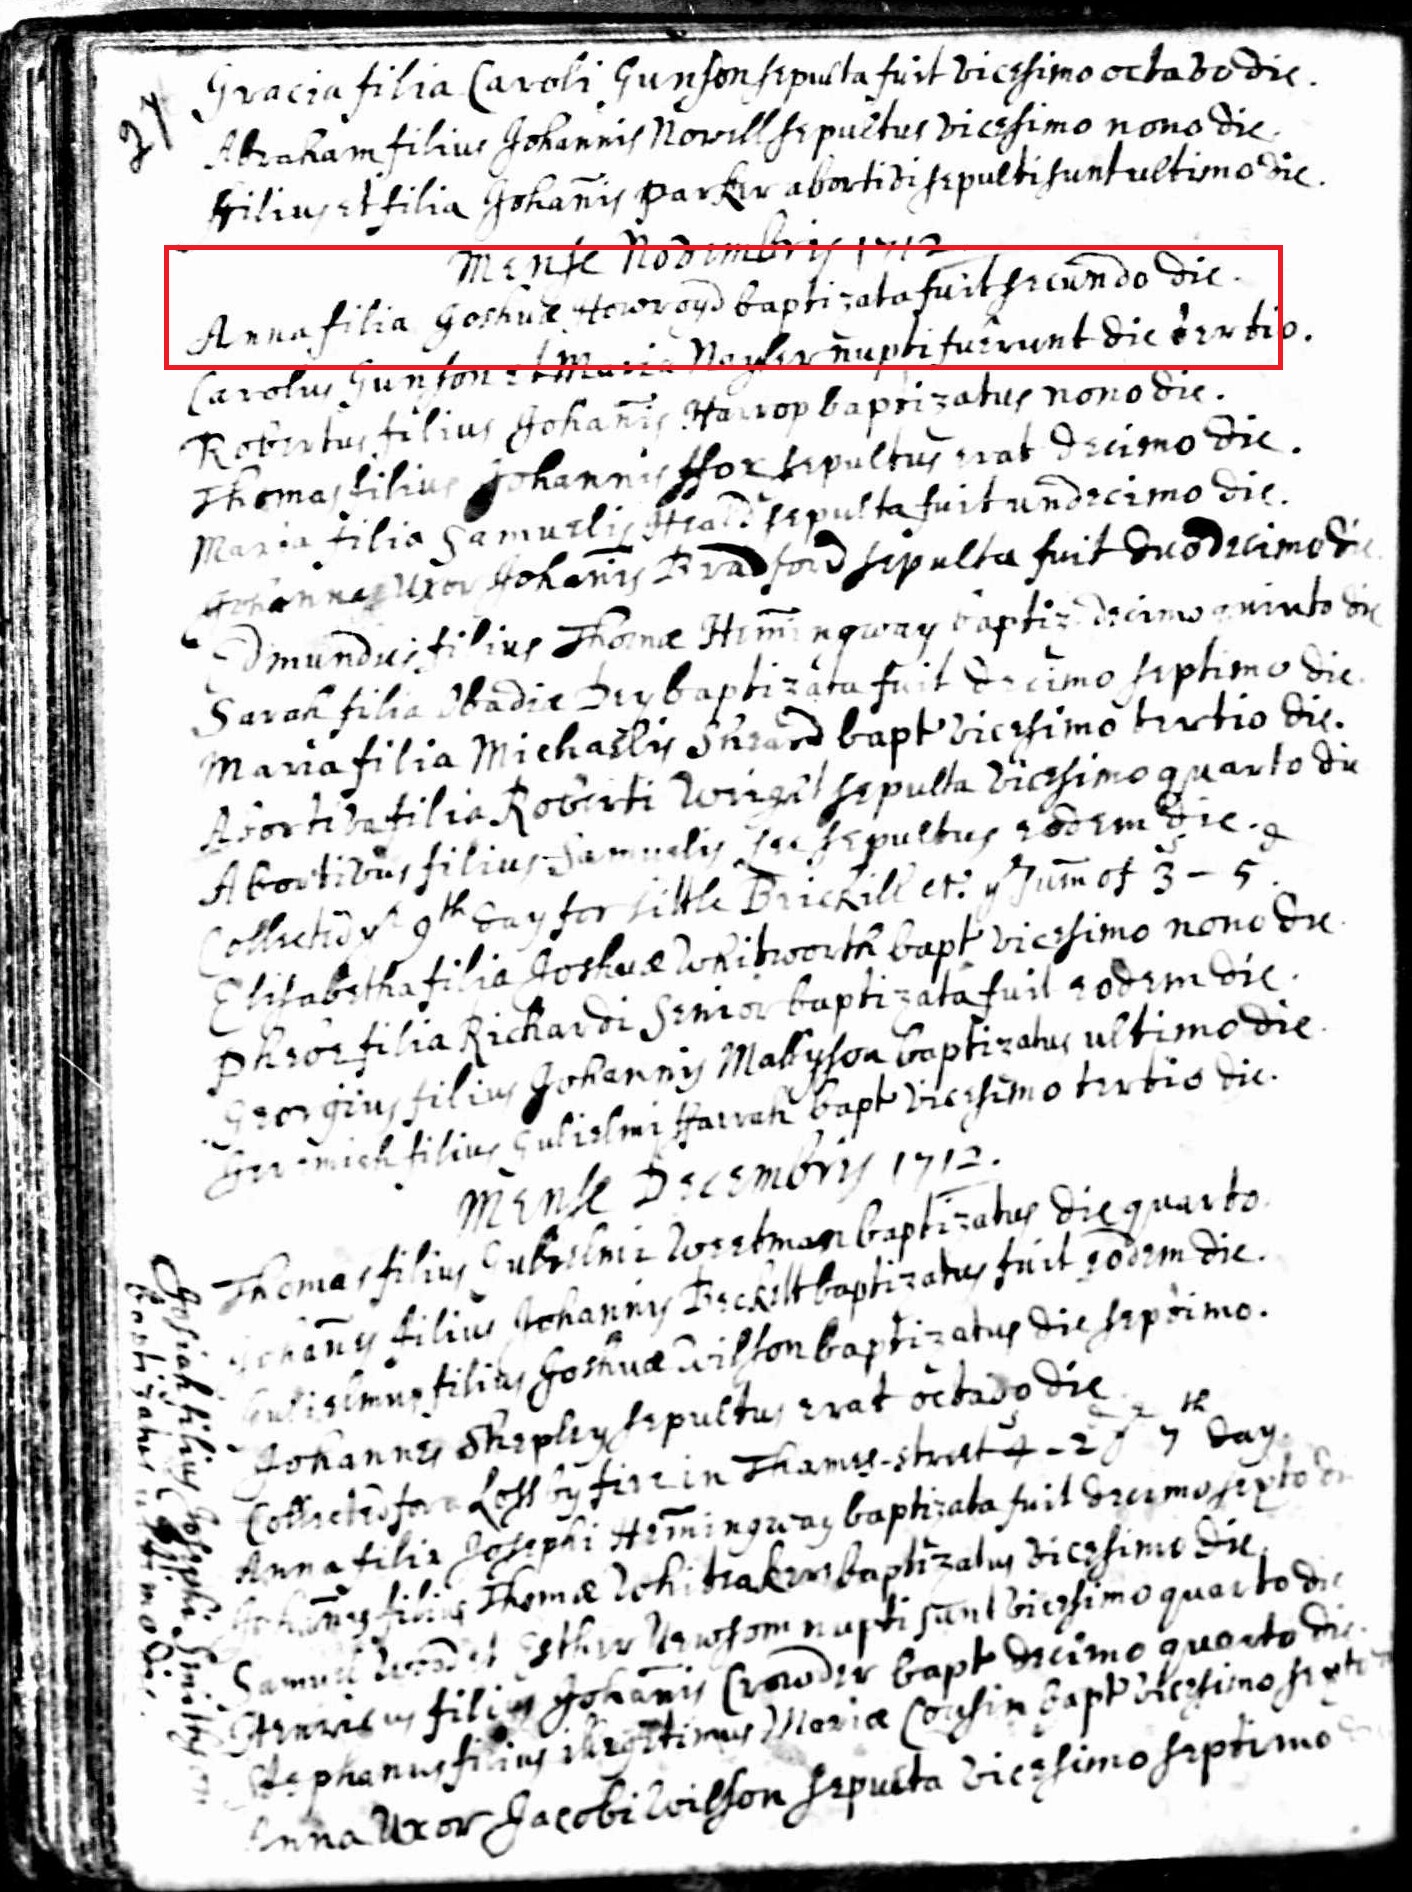 27
Gracia filia Caroli Gunson sepulta fuit vicesimo octavo die.
Abraham filius Johannis Nowell sepultus vicesimo nono die.
Filius et filia Johañis Parker abortivi sepulti sunt ultimo die.
Mense Novembris 1712
Anna filia Joshuæ Howroyd baptizata fuit secundo die.
Carolus Gunson et Maria Nayler nupti fuerunt die tertio.
Robertus filius Johañis Harrop baptizatus nono die.
Thomas filius Johannis ffox sepultus erat decimo die.
Maria filia Samuelis Heald sepulta fuit undecimo die.
Johanna Uxor Johañis Bradford sepulta fuit duodecimo die.
Edmundus filius Thomæ Hem̃ingway baptiz. decimo quinto die
Sarah filia Obadie Dey baptizata fuit decimo septimo die.
Maria filia Michaelis Sheard bapt vicesimo tertio die.
Abortiva filia Roberti Wright sepulta vicesimo quarto die
Abortivus filius Samuelis Lee sepultus eodem die.
Collected yᵉ 9th day for little Brickill etc. yᵉ sum̃ of 3s - 5d.
Elisabetha filia Joshuæ Whitworth bapt vicesimo nono die.
Phebe filia Richardi Senior baptizata fuit eodem die.
Georgius filius Johannis Mallyson baptizatus ultimo die.
Jeremiah filius Gulielmi Harrah bapt vicesimo tertio die.
Mense Decembris 1712.
Thomas filius Gulielmi Weetman baptizatus die quarto.
Johañes filius Johannis Beckett baptizatus fuit eodem die.
Gulielmus filius Joshuæ Wilson baptizatus die septimo.
Johannes Shepley sepultus erat octavo die
Collected for a Loss by fire in Thames-street 4s - 2d yᵉ 7th day.
Anna filia Josephi Hem̃ingway baptizata fuit decimo sexto die
Johañes filius Thomæ Whiteakers baptizatus vicesimo die.
Samuel Wood et Esther Newsom nupti sunt vicesimo quarto die
Henricus filius Johañis Crowder bapt decimo quarto die.
Stephanus filius illegitimus Mariæ Cousin bapt vicesimo sexto
Anna Uxor Jacobi Wilson sepulta vicesimo septimo
Josiah filius Josephi Smithson
baptizatus ultimo die.